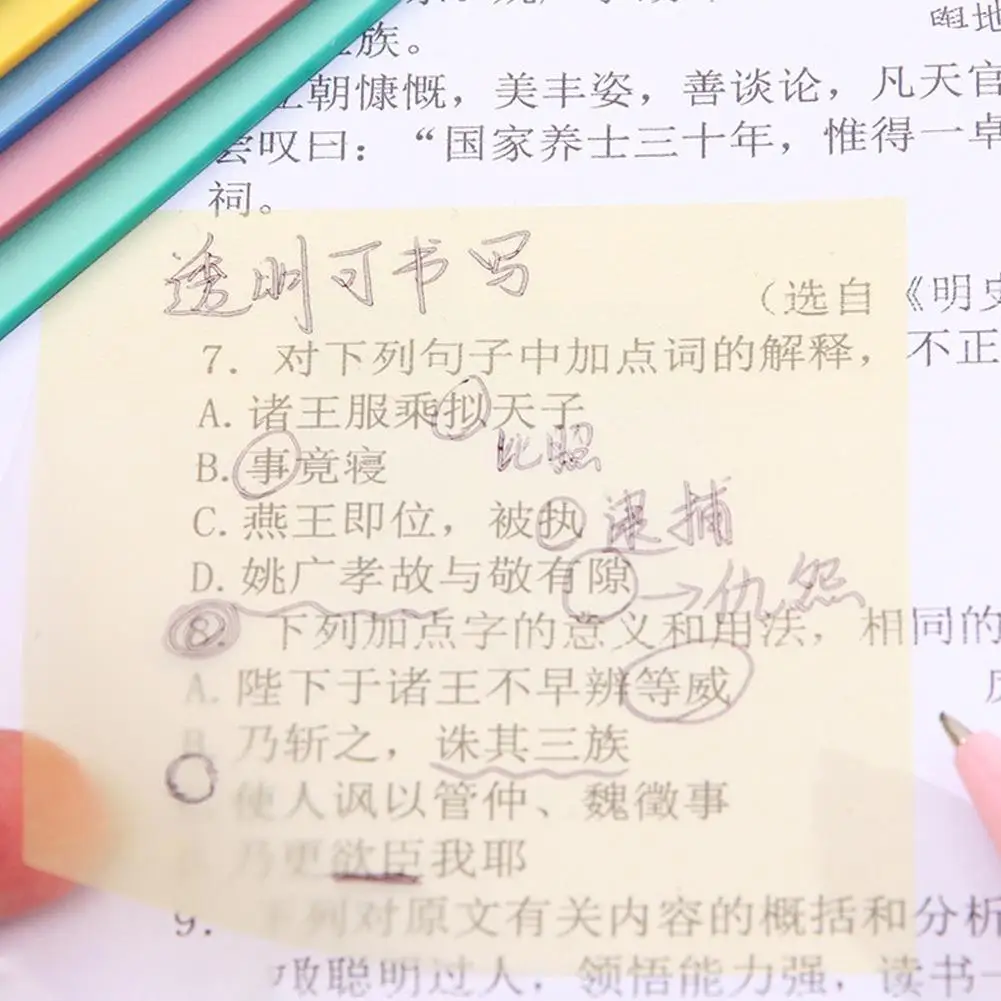 舆地
族。
朝慷慨，美丰姿，善谈论，凡天官
尝叹曰：“国家养士三十年，惟得一卓
祠。
透明可书写
（选自《明史
7．对下列句子中加点词的解释，不正
A. 诸王服乘拟天子
比照
B. 事竟寝
C. 燕王即位，被执 逮捕
D. 姚广孝故与敬有隙→仇怨
8．下列加点字的意义和用法，相同的
A. 陛下于诸王不早辨等威
乃斩之，诛其三族
使人讽以管仲、魏徵事
乃更欲臣我耶
9．下列对原文有关内容的概括和分析
敬聪明过人，领悟能力强，读书一